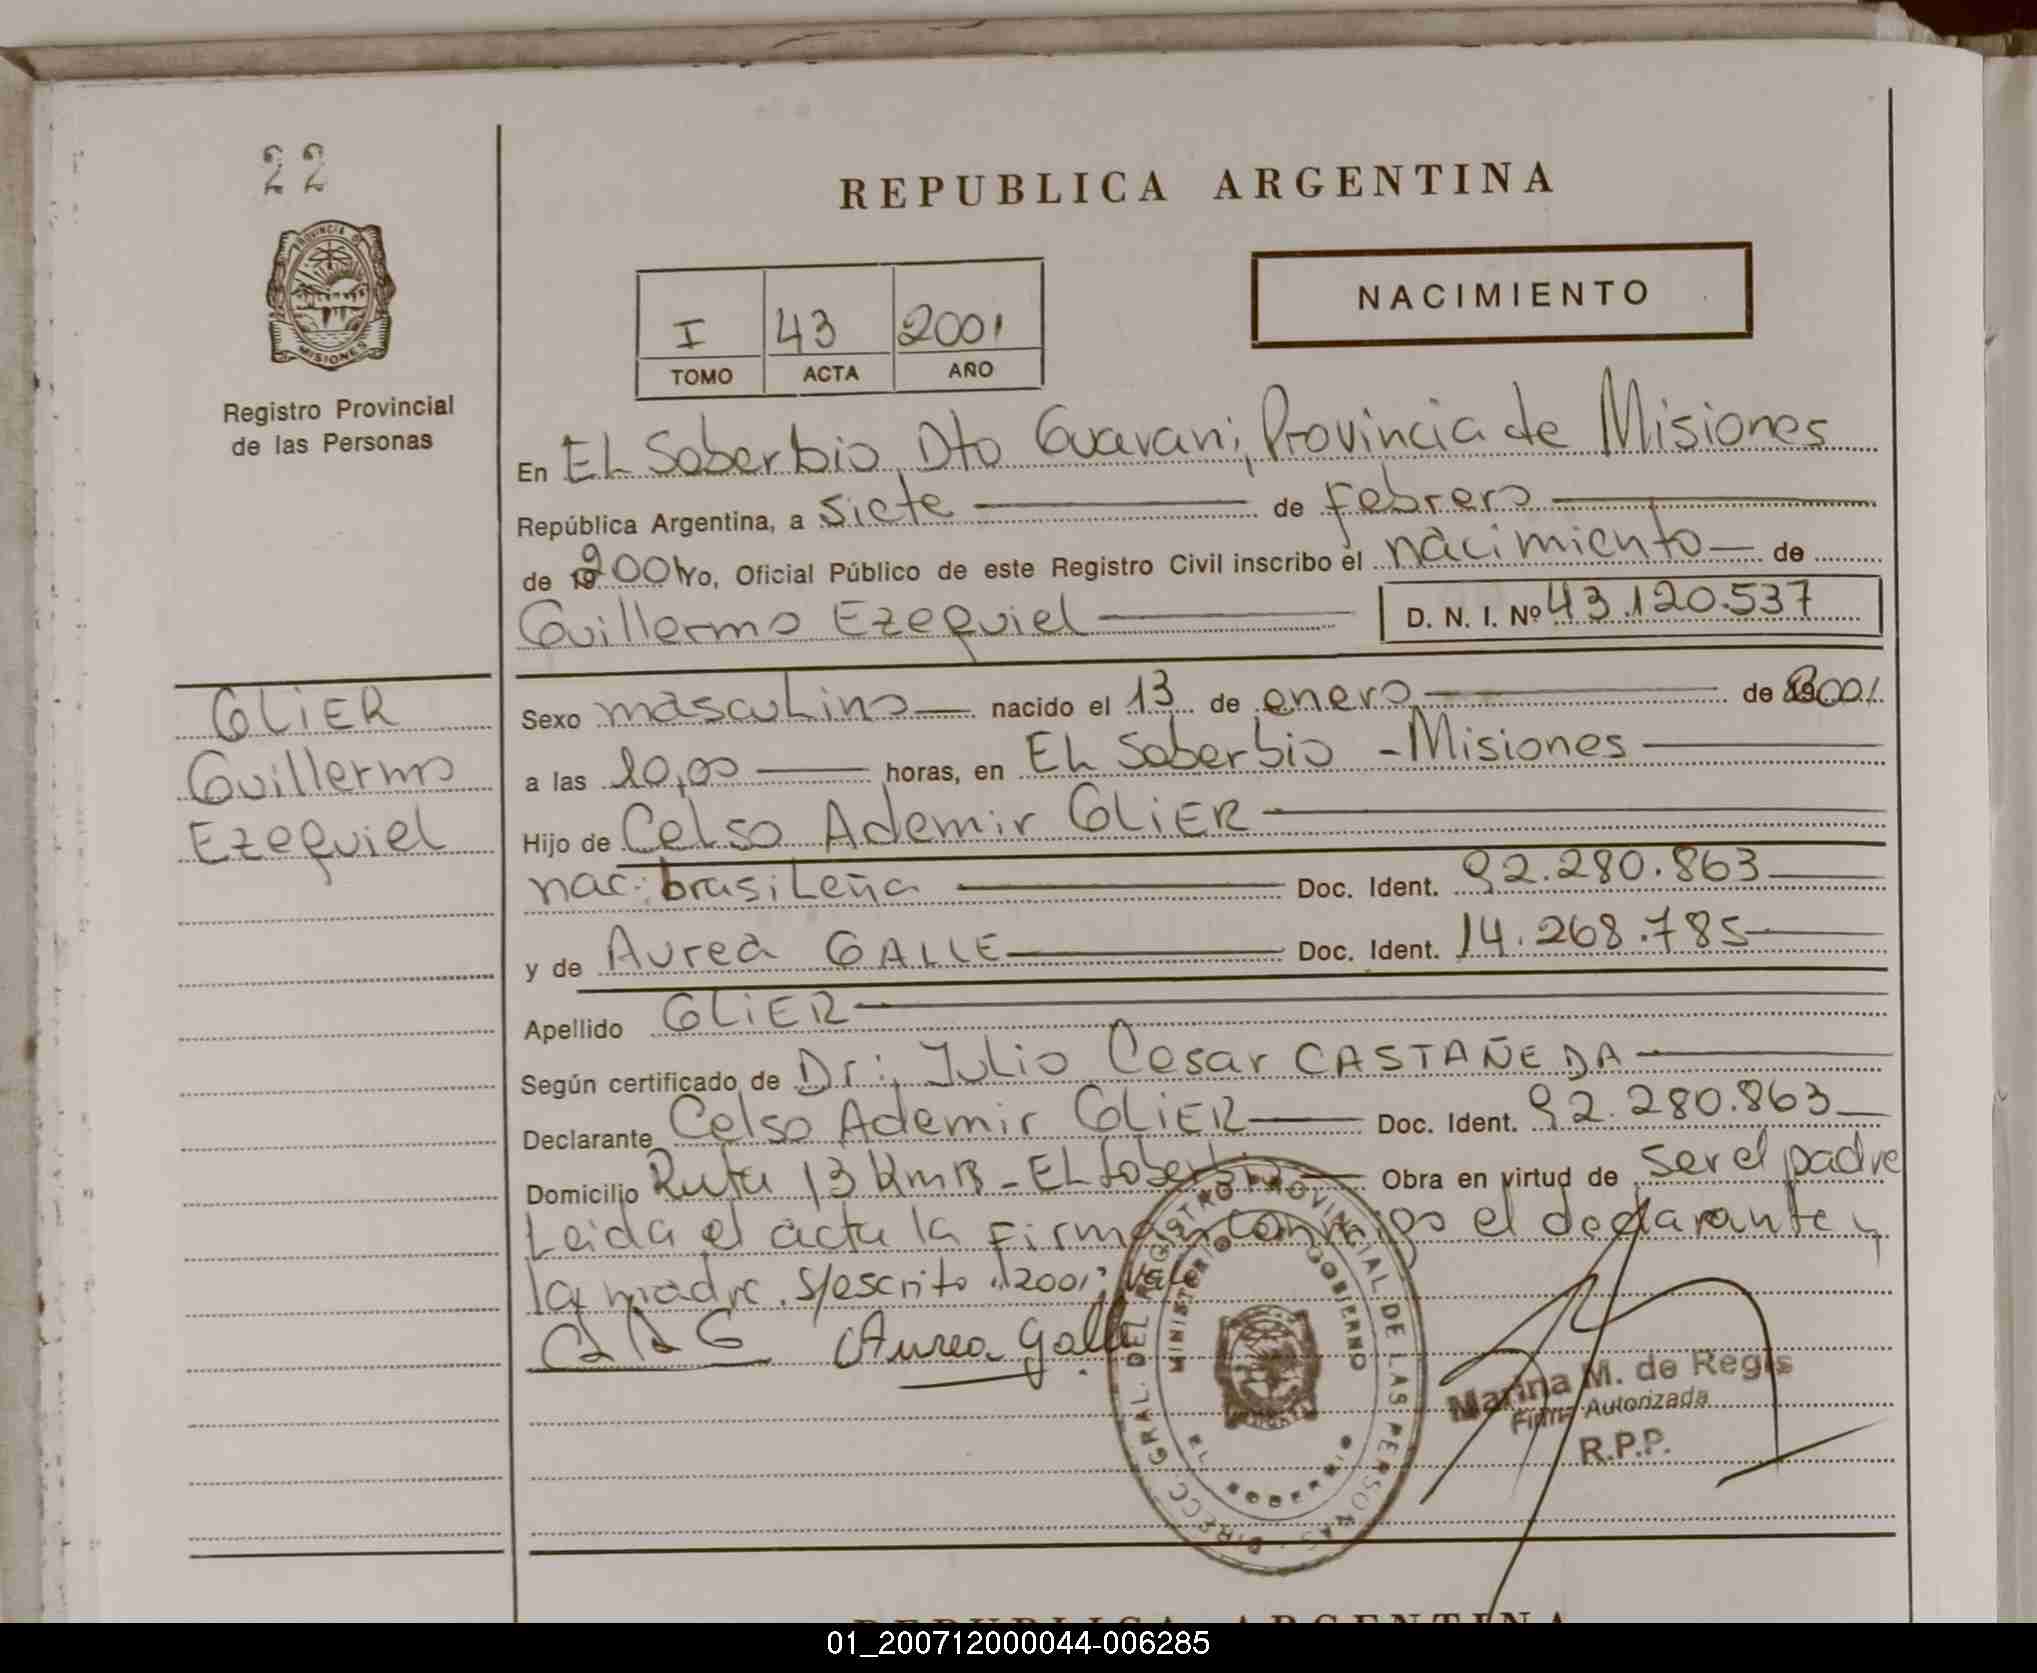 22
PROVINCIA DE
MISIONES
Registro Provincial
de las Personas
GLIER
Guillermo
Ezequiel
REPUBLICA ARGENTINA
I 43 2001
TOMO ACTA AÑO
NACIMIENTO
En EL Soberbio, Dto Guarani, Provincia de Misiones
República Argentina, a siete de febrero
de 19 2001 yo, Oficial Público de este Registro Civil inscribo el nacimiento de
Guillermo Ezequiel D. N. I. Nº 43.120.537
Sexo masculino nacido el 13 de enero de 2001
a las 10,00 horas, en EL Soberbio - Misiones
Hijo de Celso Ademir GLIER
nac: brasileña Doc. Ident. 92.280.863
y de Aurea GALLE Doc. Ident. 14.268.785
Apellido GLIER
Según certificado de Dr: Julio Cesar CASTAÑEDA
Declarante Celso Ademir GLIER Doc. Ident. 92.280.863
Domicilio Ruta 13 Km - EL Soberbio Obra en virtud de ser el padre
Leida el acta la firman conmigo el declarante y
la madre. s/escrito "2001" vale
Aurea Galle
DIRECC. GRAL. DEL REGISTRO PROVINCIAL DE LAS PERSONAS
MINISTERIO GOBIERNO
Marina M. de Regis
Firma Autorizada
R.P.P.
REPUBLICA ARGENTINA
01_200712000044-006285